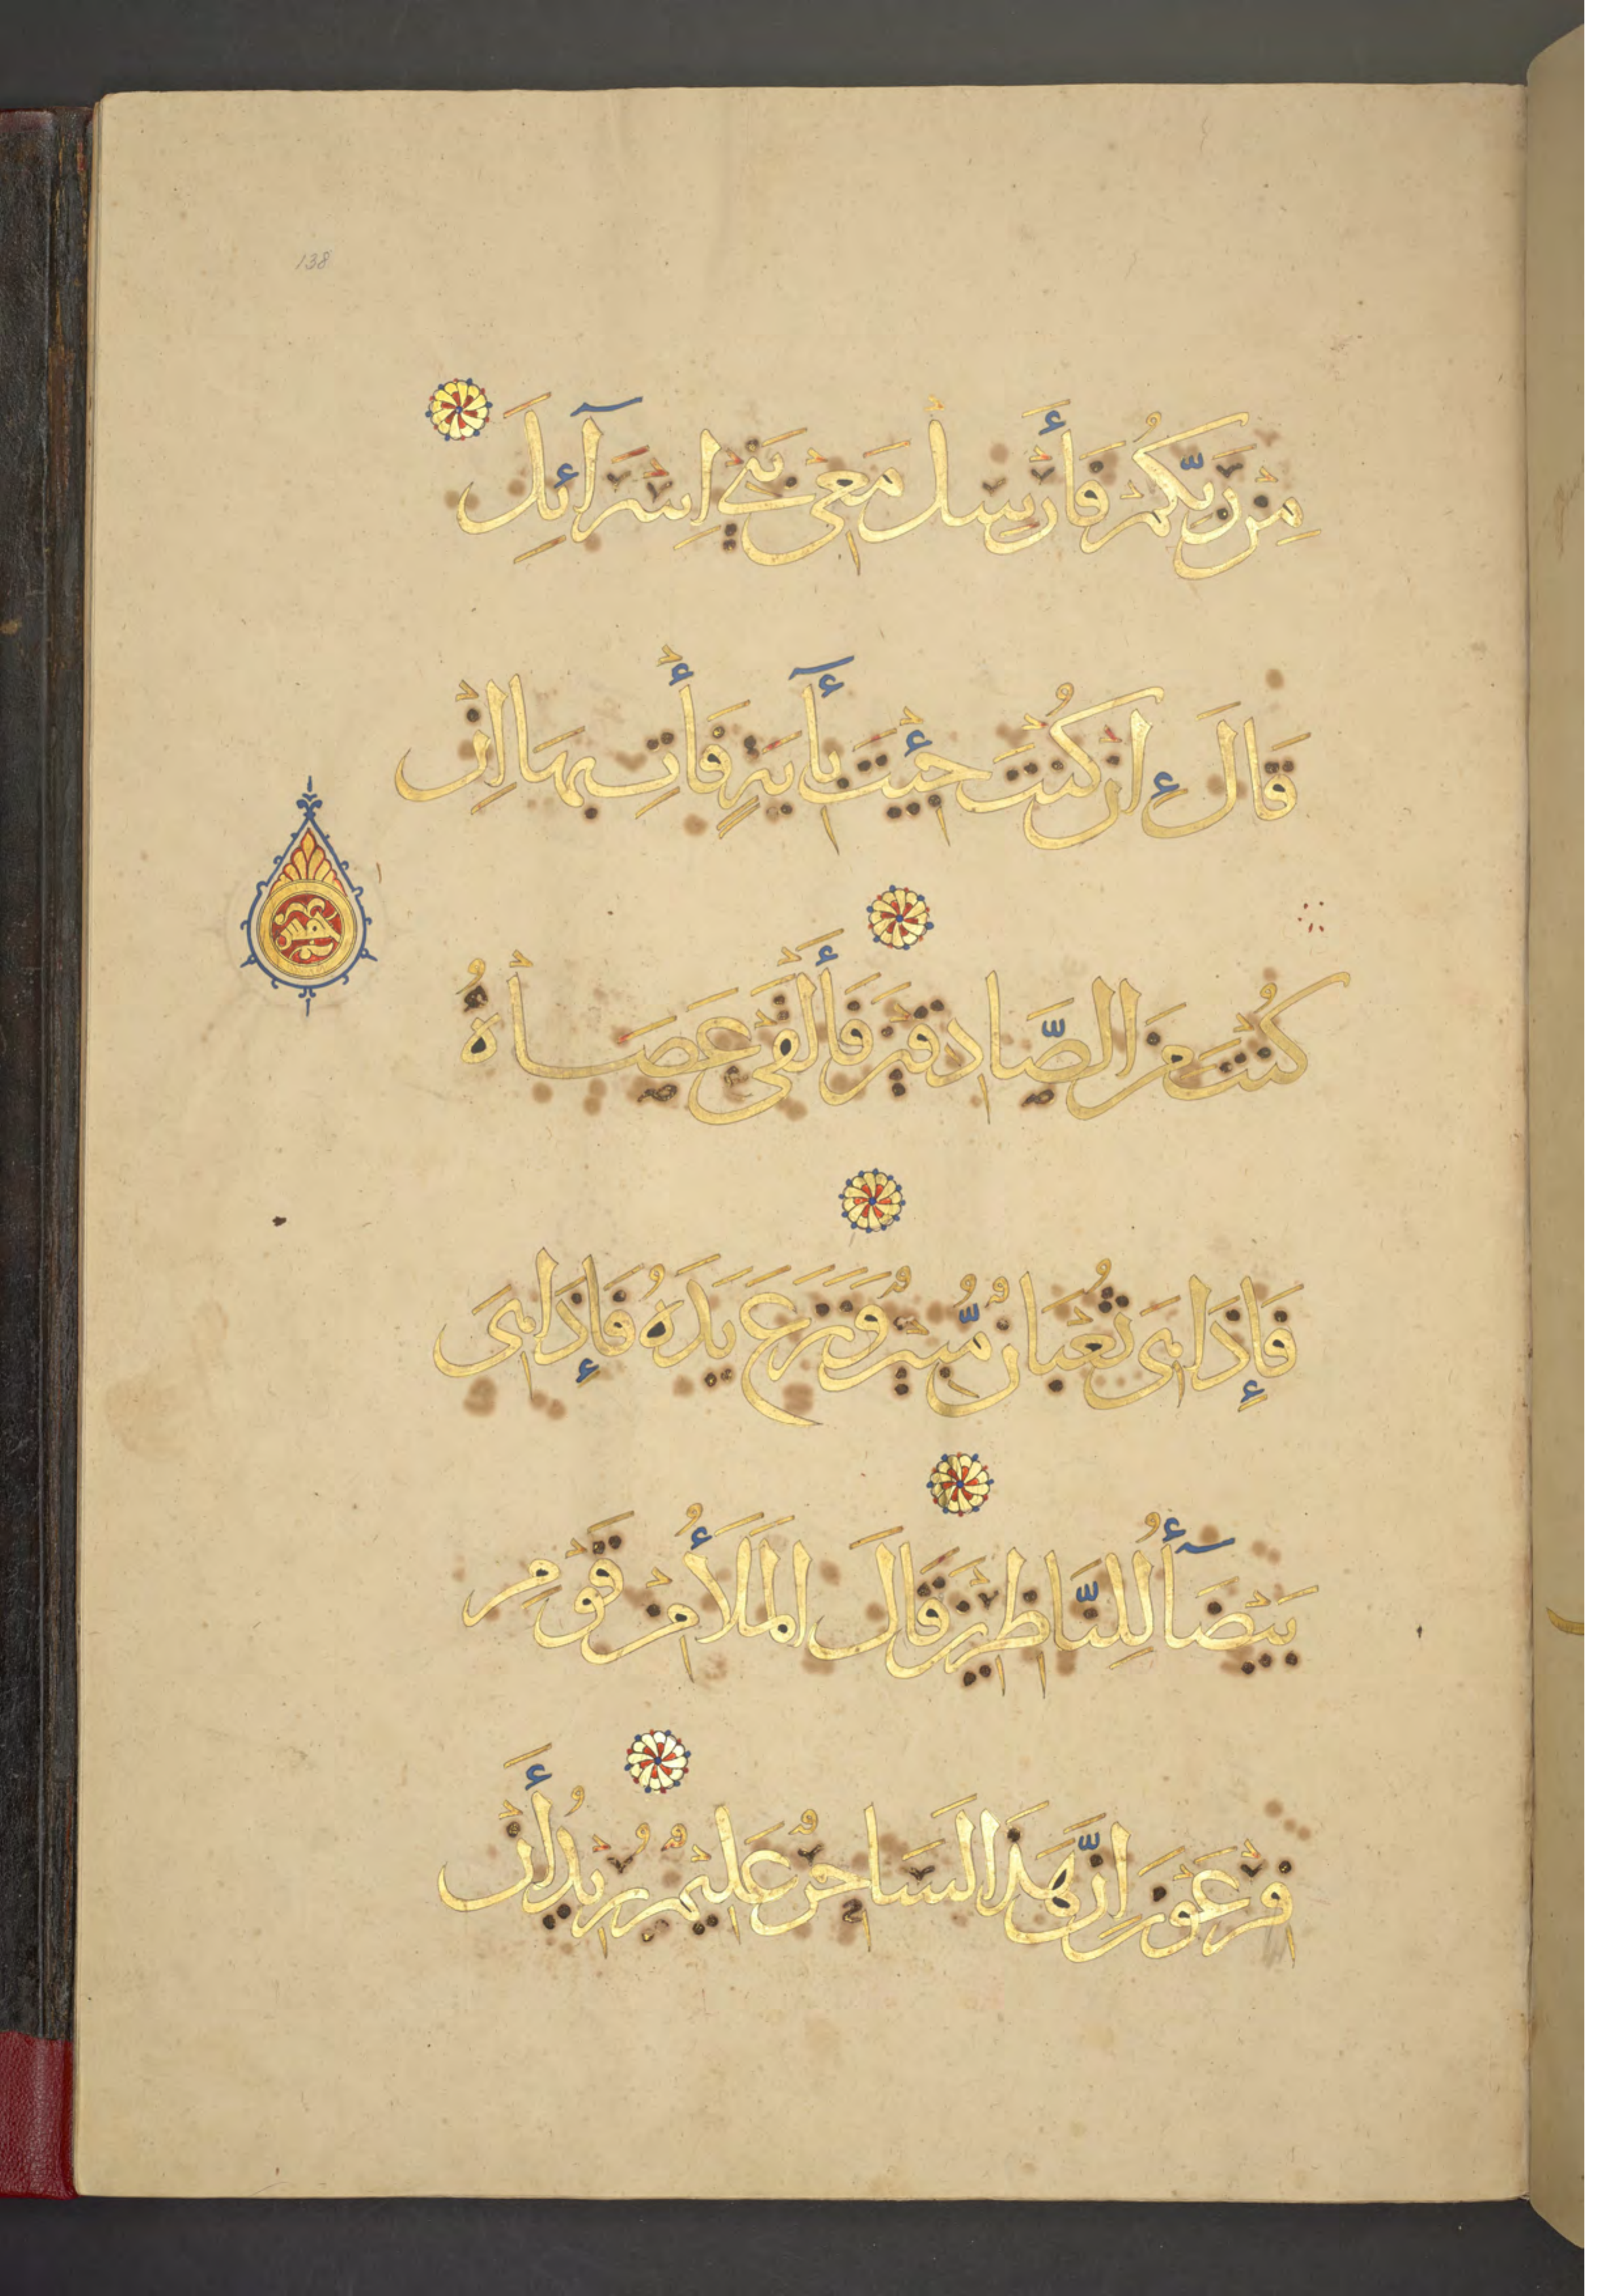 138
مِنْ رَبِّكُمْ فَأَرْسِلْ مَعِيْ بَنِيْ اِسْرَآئِلَ
قَالَ إِنْ كُنْتَ جِئْتَ بِأٓيَةٍ فَأْتِ بِهَا اِنْ
كُنْتَ مِنَ الصَّادِقِيْنَ فَأَلْقَى عَصَاهُ
خمس
فَإِذَا هِيَ ثُعْبَانٌ مُّبِيْنٌ وَنَزَعَ يَدَهُ فَإِذَا هِيَ
بَيْضَآءُ لِلنَّاظِرِيْنَ قَالَ الْمَلَأُ مِنْ قَوْمِ
فِرْعَوْنَ اِنَّ هَذَا لَسَاحِرٌ عَلِيْمٌ يُرِيْدُ أَنْ